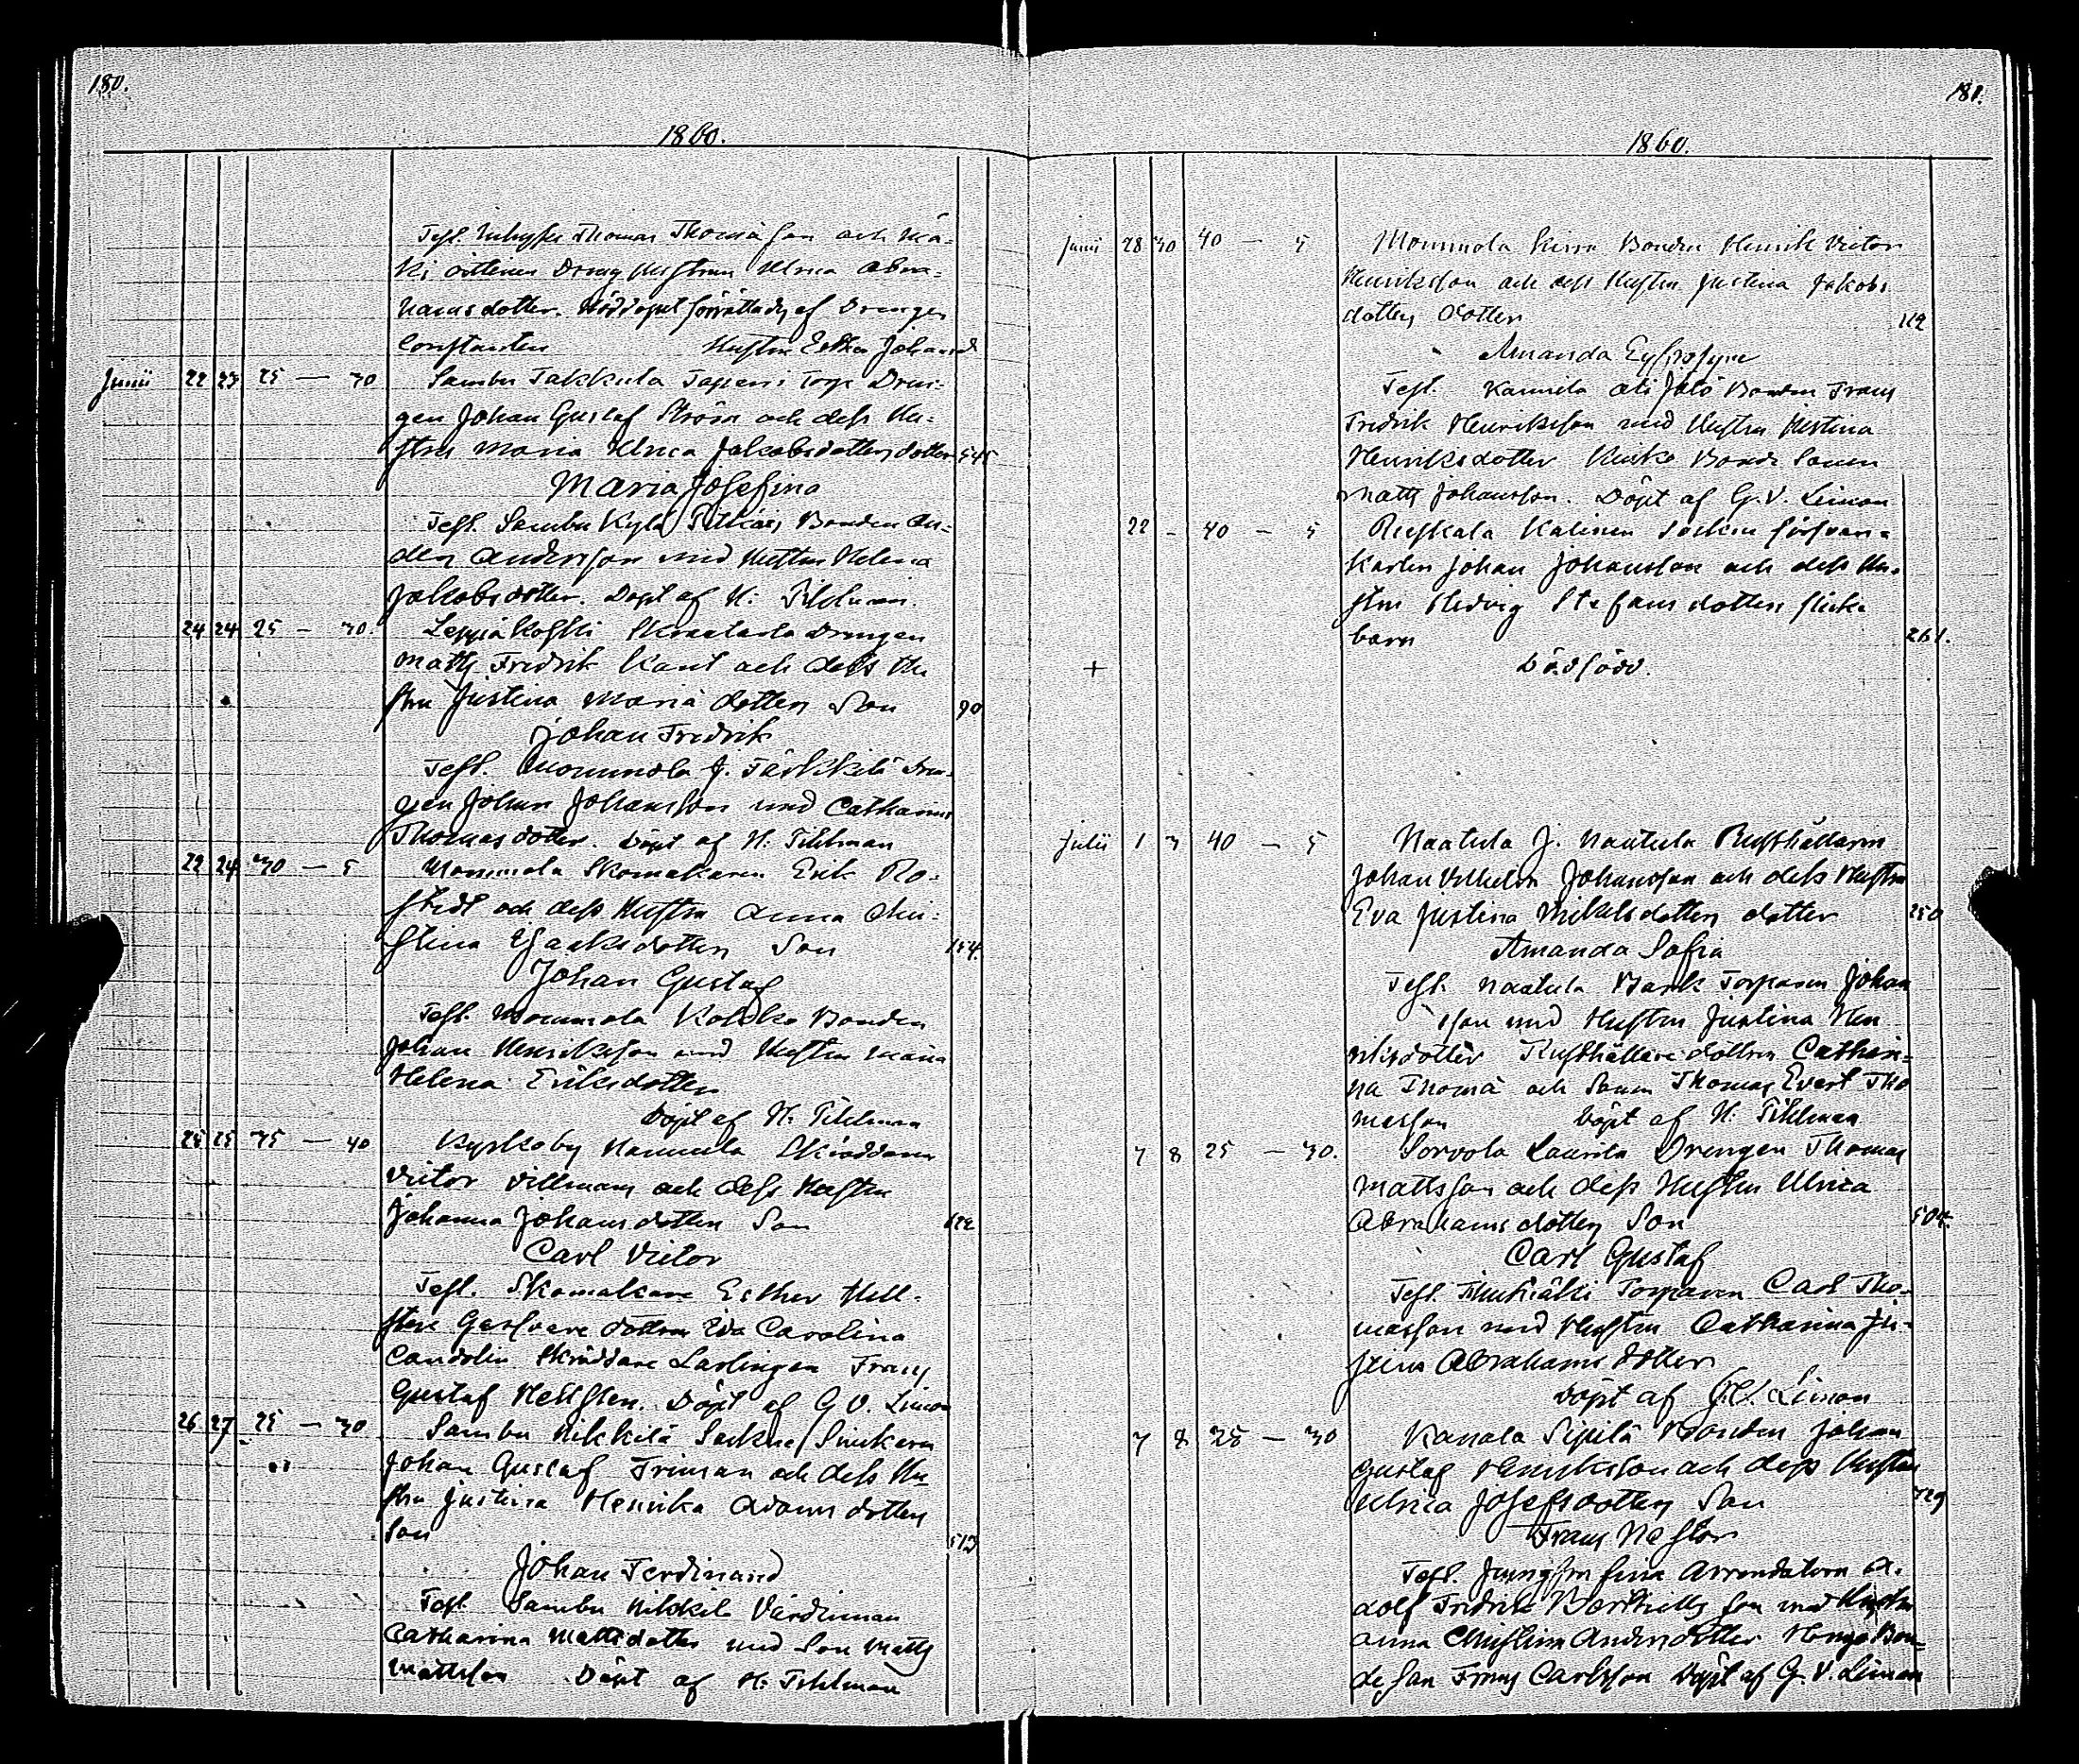 180.
1860.
Test. Thomas Thomasson och Mä-
ki Dreng Hustrun Ulrica Abra-
hamsdotter. Nöddopet förrättades af Drengen
Hustru Esther Johansd
Junii 22 23 25 — 30 Sambu Takkula Torp Dren-
gen Johan Gustaf Ström och dess Hu-
stru Maria Ulrica Jakobsdotters dotter 545
Maria Josefina
Test. Sambu Kylä Bonden An-
ders Andersson med Hustru Helena
Jakobsdotter. Döpt af H. Tihlman.
24 24 25 — 30. Leppäkoski Drengen
Matts Fredrik Kant och dess Hu
stru Justina Mariä dotters Son 90
Johan Fredrik
Test. Mommola J. Dren-
gen Johan Johansson med Catharina
Thomasdotter. Döpt af H. Tihlman
22 24 30 — 5 Mommola Skomakaren Erik Ro-
stedt och dess Hustru Anna Chri-
stina Isaksdotters Son 154.
Johan Gustaf
Test. Mommola Bonden
Johan Henriksson med Hustru Maria
Helena Eriksdotter
Döpt af H. Tihlman
25 25 35 — 40 Kyrkoby Skräddaren
Victor Villman och dess Hustru
Johanna Johansdotters Son
Carl Victor
Test. Skomakare Esther Hell-
sten Garfvare dottren Eva Carolina
Candolin Skräddare Lärlingen Frans
Gustaf Hellsten. Döpt af G. V. Limon
26 27 25 — 30 Sambu Nikkilä Socken Snickaren
Johan Gustaf Friman och dess Hu-
stru Justina Henrika Adamsdotters
Son 513
Johan Ferdinand
Test. Sambu Nikkilä Värdinnan
Catharina Mattsdotter med Son Matts
Mattsson Döpt af H. Tihlman
181.
1860.
Junii 28 30 40 — 5 Mommola Bonden Henrik Victor
Henriksson och dess Hustru Justina Jakobs
dotters dotter 112
Amanda Eufrosyne
Test. Ali Bonden Frans
Fredrik Henriksson med Hustru Kristina
Henriksdotter Bonde Sonen
Matts Johansson. Döpt af G. V. Limon
22 - 40 — 5 Ruskala Kalinen Socken försvars-
karlen Johan Johansson och dess Hu-
stru Hedvig Stefansdotters flicke
barn 261.
+ Dödfödd.
Julii 1 3 40 — 5 Naatula J. Naatula Rusthållaren
Johan Vilhelm Johansson och dess Hustru
Eva Justina Mikelsdotters dotter 250
Amanda Sofia
Test. Naatula Torparen Johan
sson med Hustru Justina Hen
riksdotter Rusthållare dottren Cathari-
na Thomä och Sonen Thomas Evert Tho
masson Döpt af H. Tihlman
7 8 25 — 30. Sorvola Laurila Drengen Thomas
Mattsson och dess Hustru Ulrica
Abrahamsdotters Son 504.
Carl Gustaf
Test. Torparen Carl Tho-
masson med Hustru Catharina
Abrahamsdotter
Döpt af G. V. Limon
7 8 25 — 30 Kanala Sipilä Bonden Johan
Gustaf Henriksson och dess Hustru
Ulrica Josefsdotters Son 329
Frans Nestor
Test. Arrendatorn A-
dolf Fredrik Bertilsson med Hustru
Anna Christina Andersdotter Bon-
de Son Frans Carlsson Döpt af G. V. Limon